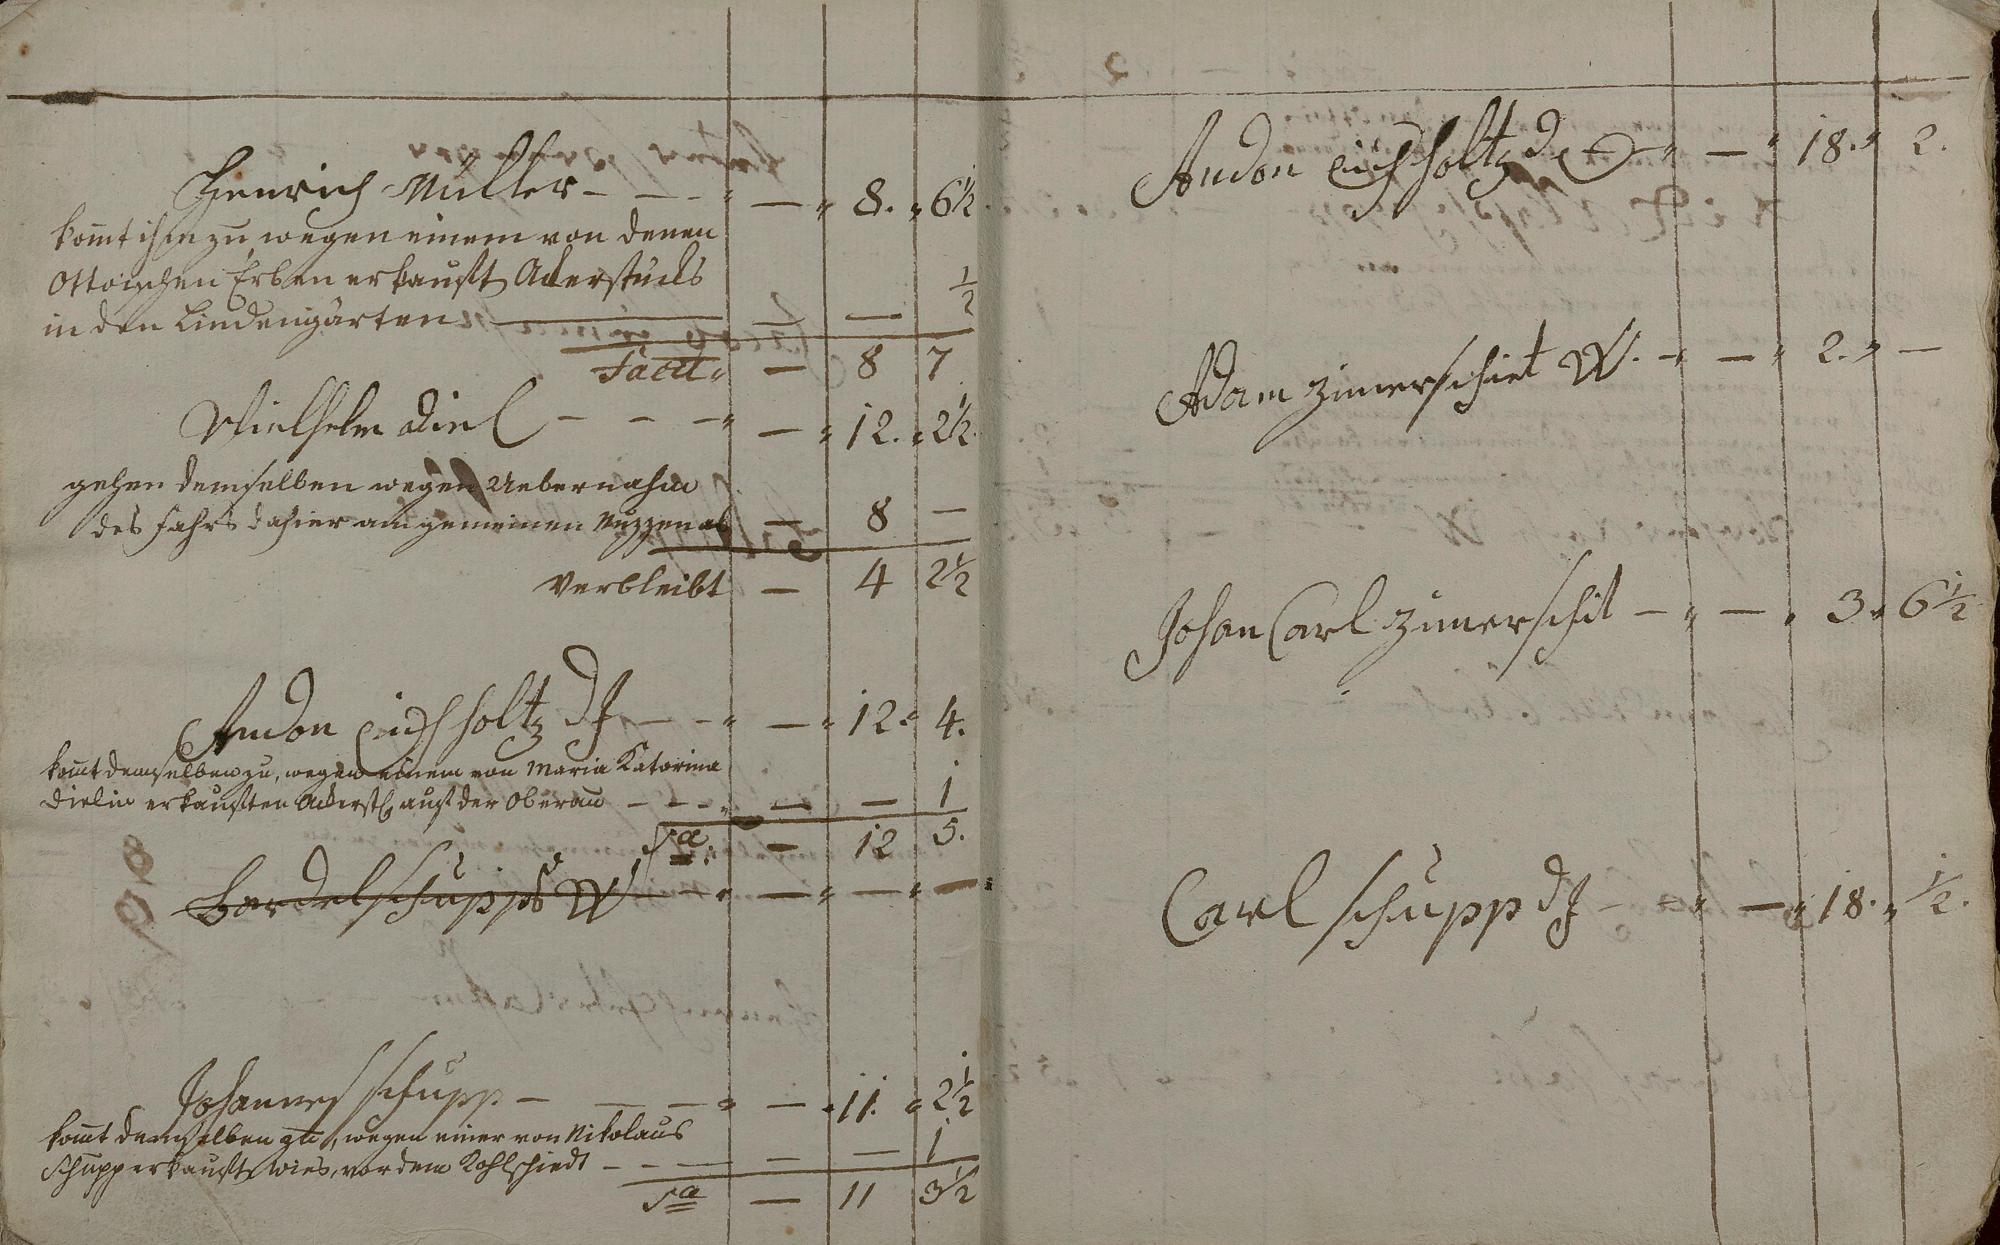 Henrich Müller - - - - " — " 8. " 6½.
komt ihm zu, wegen einem von denen
Ottoischen Erben erkauft Ackerstücks
in den Lindengärten — — — ½
Facit " — 8 7
Wielhelm diel - - - " — " 12. " 2½.
gehen demselben wegen Uebernahm
des Fahrs dahier am gemeinen Nuzzen ab — 8 —
verbleibt — 4 2½
Andon Eichholtz dJ - - " — " 12. " 4.
komt demselben zu, wegen einem von Maria Katarina
Dielin erkauften Ackerst. auf der Oberau - - - " — — 1
Sa. — 12 5.
Bardel schupps W - " — " — " — "
Johannes schupp - - - " — " 11. " 2½
komt demselben zu, wegen einer von Nikolaus
Schupp erkaufte Wies, vor dem Kohlschiedt - - - — — 1
Sa — 11 3½
Andon Eichholtz d — " — " 18. " 2.
Adam zimerschiet W. - " — " 2. " —
Johan Carl zimerschit - " — " 3. " 6½
Carl schupp dJ - - " — " 18. " ½.